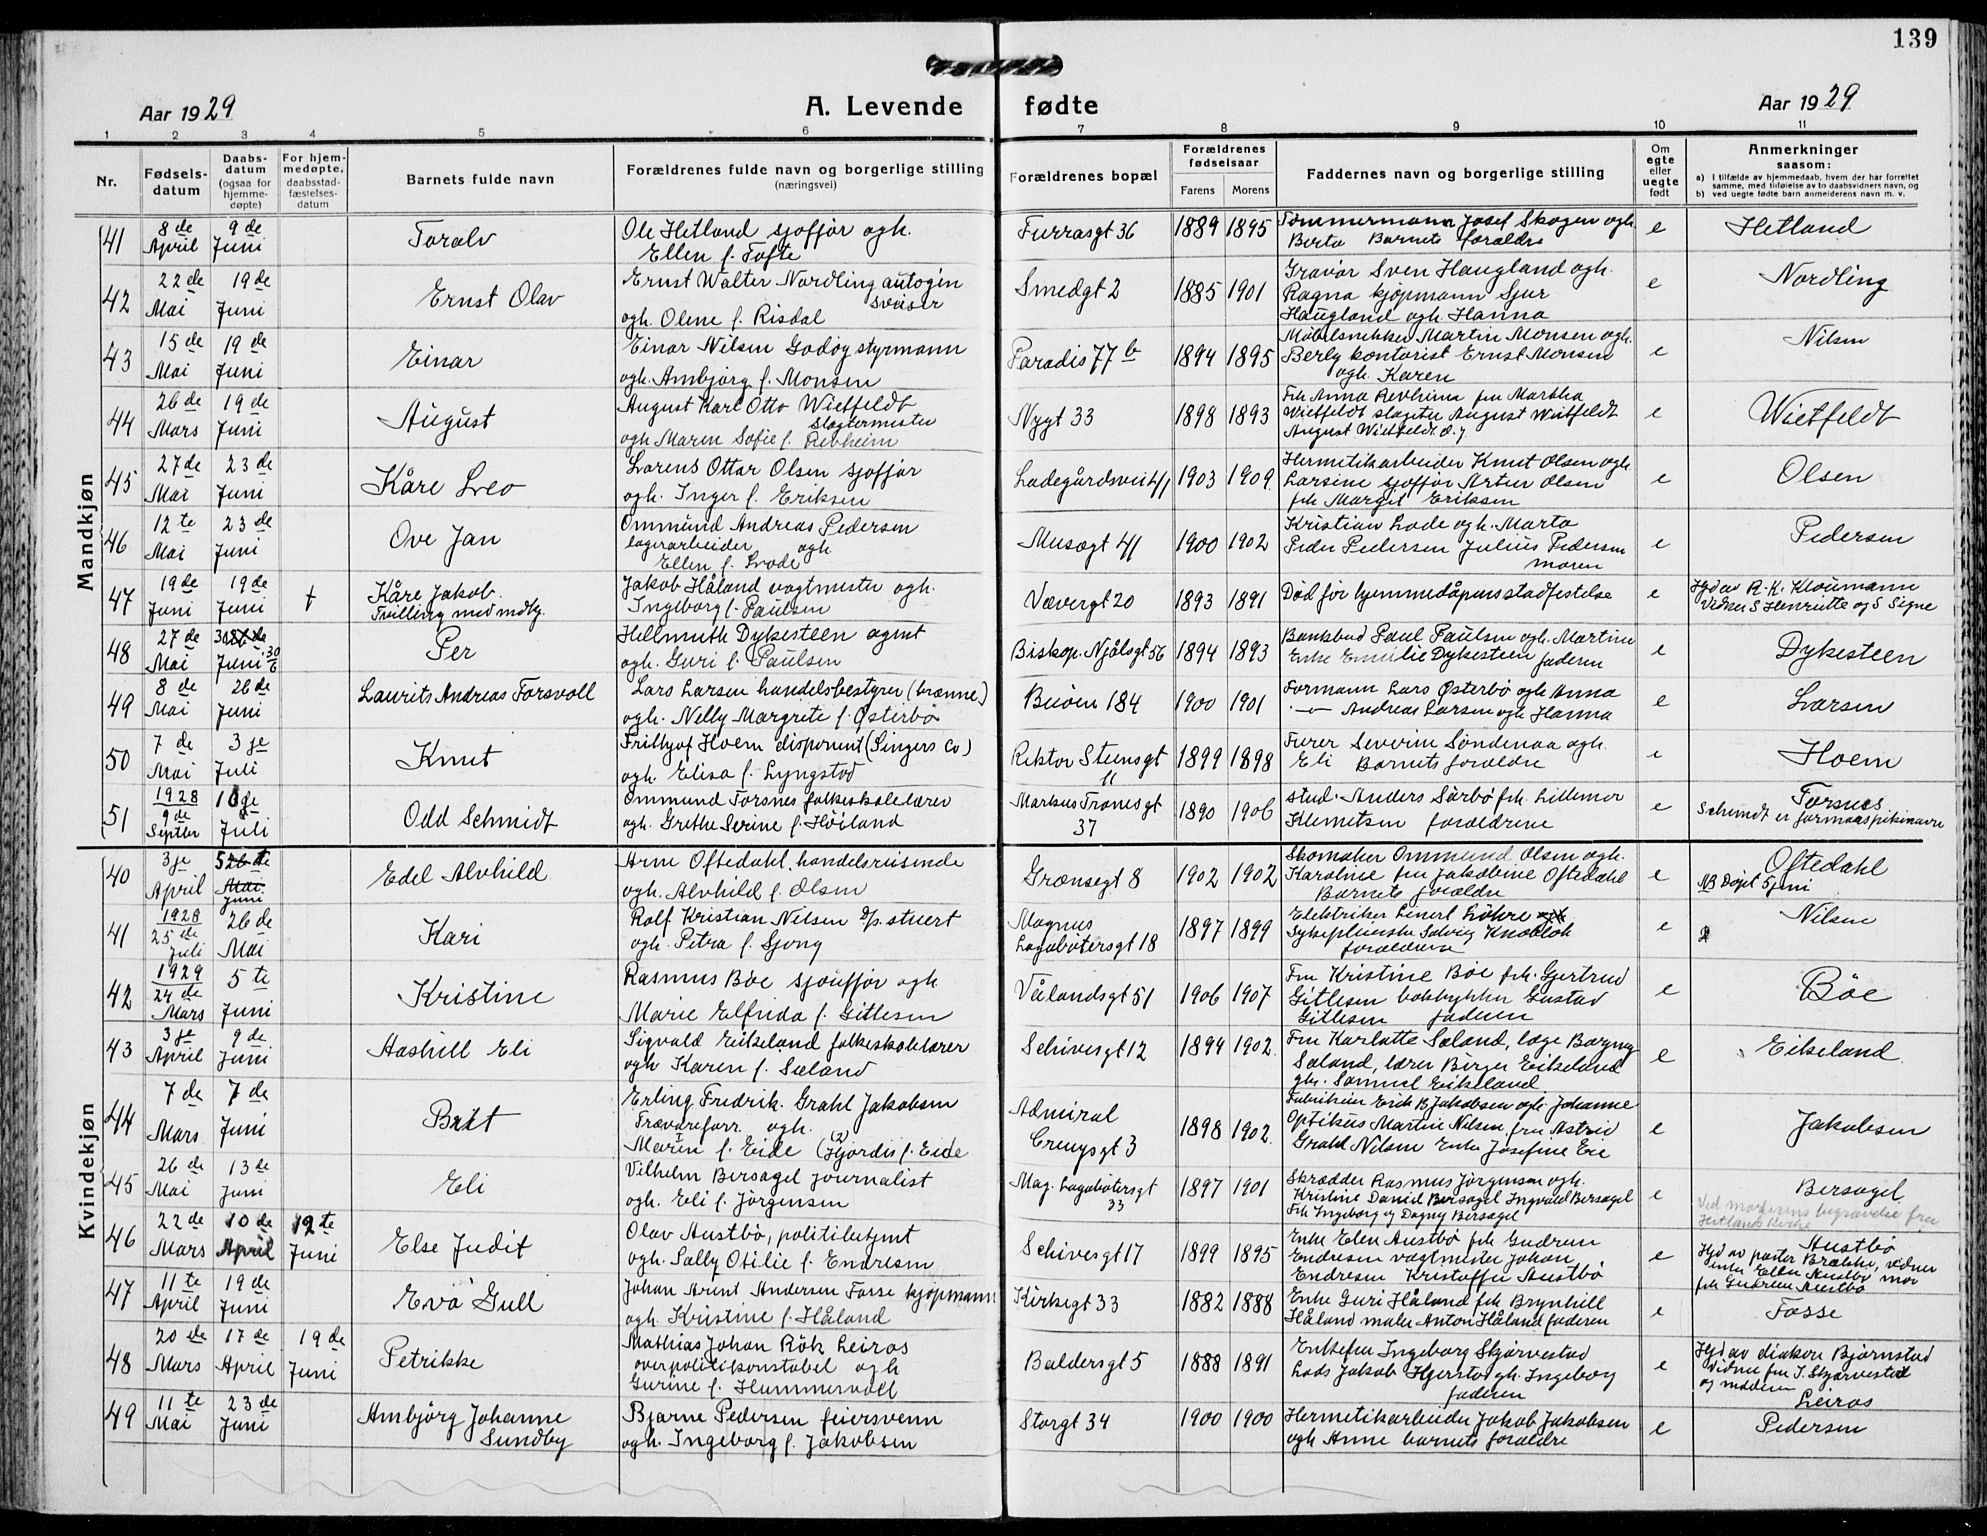 139
Aar 1929
A. Levende fødte
Aar 1929
1 2 3 4 5 6 7 8 9 10 11
Nr.
Fødsels-
datum
Daabs-
datum
(ogsaa for
hjemme-
døpte)
For hjem-
medøpte,
daabsstad-
fæstelses-
datum
Barnets fulde navn
Forældrenes fulde navn og borgerlige stilling
(næringsvei)
Forældrenes bopæl
Forældrenes
fødselsaar
Farens Morens
Faddernes navn og borgerlige stilling
Om
egte
eller
uegte
født
Anmerkninger
saasom:
a) I tilfælde av hjemmedaab, hvem der har forrettet
samme, med tilføielse av to daabsvidners navn, og
b) ved uegte fødte barn anmelderens navn m. v.
Mandkjøn
41 8de April 9de Juni Toralv
Ole Hetland sjofför ogh.
Ellen f. Tofte
Furrasgt 36 1889 1895
Tømmermann Josef Skogen ogh.
Berta Barnets forældre
e Hetland
42 22de Mai 19de Juni Ernst Olav
Ernst Walter Nordling autogin
sveiser
ogh. Olene f. Risdal
Smedgt 2 1885 1901
Gravör Sven Haugland ogh.
Ragna kjøpmann Sjur
Haugland ogh. Hanna
e Nordling
43 15de Mai 19de Juni Einar
Einar Nilsen Godøy styrmann
ogh. Ambjørg f. Monsen
Paradis 77b 1894 1895
Møbelsnekker Martin Monsen ogh.
Berly kontorist Ernst Monsen
ogh. Karen
e Nilsen
44 26de Mars 19de Juni August
August Karl Otto Wietfeldt
Slagtermester
ogh Maren Sofie f. Revheim
Nygt 33 1898 1893
Frk Anna Revheim fru Martha
Wietfeldt slagter August Wietfeldt
August Wietfeldt d. y.
e Wietfeldt
45 27de Mai 23de Juni Kåre Leo
Lorens Ottar Olsen sjofför
ogh. Inger f. Eriksen
Ladegårdsvei 41 1903 1909
Hermetikarbeider Knut Olsen ogh.
Larsine sjofför Artur Olsen
frk Margit Eriksen
e Olsen
46 12te Mai 23de Juni Ove Jan
Ommund Andreas Pedersen
lagerarbeider ogh
Ellen f. Lode
Musegt 41 1900 1902
Kristian Lode ogh. Marta
Peder Pedersen Julius Pedersen
moren
e Pedersen
47 19de Juni 19de Juni † Kåre Jakob.
Tvilling med mdby.
Jakob Håland vagtmester ogh.
Ingeborg f. Paulsen
Vævergt 20 1893 1891
Død før hjemmedåpens stadfestelse
e Hjd av R. K. Kloumann
Vidner S Henriette og S Signe
48 27de Mai 30 Juni 30/6 Per
Hellmuth Dykesteen agent
ogh. Guri f. Paulsen
Biskop. Njålsgt 56 1894 1893
Bankbud Paul Paulsen ogh. Martine
Enke Emilie Dykesteen faderen
e Dykesteen
49 8de Mai 26de Juni Laurits Andreas Forsvoll
Lars Larsen handelsbestyrer (brænne)
ogh. Nelly Margrete f. Østerbø
Buöen 184 1900 1901
Formann Lars Østerbø ogh Anna
— Andreas Larsen ogh Hanna
e Larsen
50 7de Mai 3je Juli Knut
Frithjof Hoem disponent (Singers Co)
ogh. Elisa f. Lyngstad
Rektor Steensgt
11 1899 1898
Furer Severin Söndenaa ogh.
Eli Barnets forældre
e Hoem
51 1928 9de Septber 10de Juli Odd Schmidt
Ommund Torsnes folkeskolelærer
ogh. Grethe Serine f. Höiland
Markus Tronesgt
37 1890 1906
Stud. Anders Sörbö frk. Lillemor
Klemetsen forældrene
e Torsnes
Schmidt er
Kvindekjøn
40 3je April 5te Mai Juni Edel Alvhild
Arne Oftedahl, handelsreisende
ogh. Alvhild f. Olsen
Grænsegt 8 1902 1902
Skomaker Ommund Olsen ogh.
Karoline fru Jakobine Oftedahl
Barnets forældre
e Oftedahl
NB Döpt 5 juni
41 1928 25de Juli 26de Mai Kari
Rolf Kristian Nilsen d/s stuert
ogh. Petra f. Sjong
Magnus
Lagabøtersgt 18 1897 1899
Elektriker Einert Löhre
Sykepleierske Solvig
forældrene
e Nilsen
42 1929 24de Mars 5te Juni Kristine
Rasmus Böe sjouffør ogh
Marie Elfrida f. Gitlesen
Vålandsgt 51 1906 1907
Fru Kristine Böe frk. Gjertrud
Gitlesen bokbykker Gustav
Gitlesen faderen
e Böe
43 3je April 9de Juni Aashill Eli
Sigvald Eikeland folkeskolelærer
ogh Karen f. Sæland
Schivesgt 12 1894 1902
Fru Karlotte Sæland, læge Borgny
Sæland, lærer Birger Eikeland
ghr. Samuel Eikeland
e Eikeland
44 7de Mars 7de Juni Brit
Erling Fredrik. Grahl Jakobsen
Trævareforr. ogh.
Maren f. Eide (2) (Hjördis f. Eide
Admiral
Cruysgt 3 1898 1902
Fabrikeier Erik B Jakobsen ogh. Johanne
Optikus Martin Nilsen fru Astrid
Grahl Nilsen Enke Josefine Eie
e Jakobsen
45 26de Mai 13de Juni Eli
Vilhelm Bersagel Journalist
ogh. Eli f. Jörgensen
Mag. Lagabötersgt
33 1897 1901
Skrædder Rasmus Jörgensen ogh.
Kristine Daniel Bersagel Ingvald Bersagel
Frk Ingeborg og Dagny Bersagel
e Bersagel
Ved moderens begravelse fra
Hetlands kirke
46 22de Mars 10de April 12te Juni Else Judit
Olav Austbö, politibetjent
ogh. Sally Otilie f. Endresen
Schivesgt 17 1899 1895
Enke Elen Austbö frk Gudrun
Endresen vagtmester Johan
Endresen Kristoffer Austbö
e Austbö
Hjd av pastor Brække, vidner
enke Ellen Austbö mor
frk Gudrun Austbö
47 11te April 19de Juni Eva Gull
Johan Arent Andersen Fosse kjøpmann
ogh. Kristine f. Håland
Kirkegt 33 1882 1888
Enke Guri Håland frk Brynhill
Håland maler Anton Håland faderen
e Fosse
48 20de Mars 17de April 19de Juni Petrikke
Mathias Johan Rök Leiros
overpolitikonstabel ogh
Gurine f. Hummervoll
Baldersgt 5 1888 1891
Enkefru Ingeborg Skjørvestad
Lods Jakob Hjersto gh. Ingeborg
faderen
e Hjd av diakon Bjørnstad
Vidner fru I. Skjørvestad
og moderen
Leiros
49 11te Mai 23de Juni Ambjörg Johanne
Sundby
Bjarne Pedersen feiersvenn
ogh. Ingeborg f. Jakobsen
Storgt 34 1900 1900
Hermetikarbeider Jakob Jakobsen
ogh Anne barnets forældre
e Pedersen